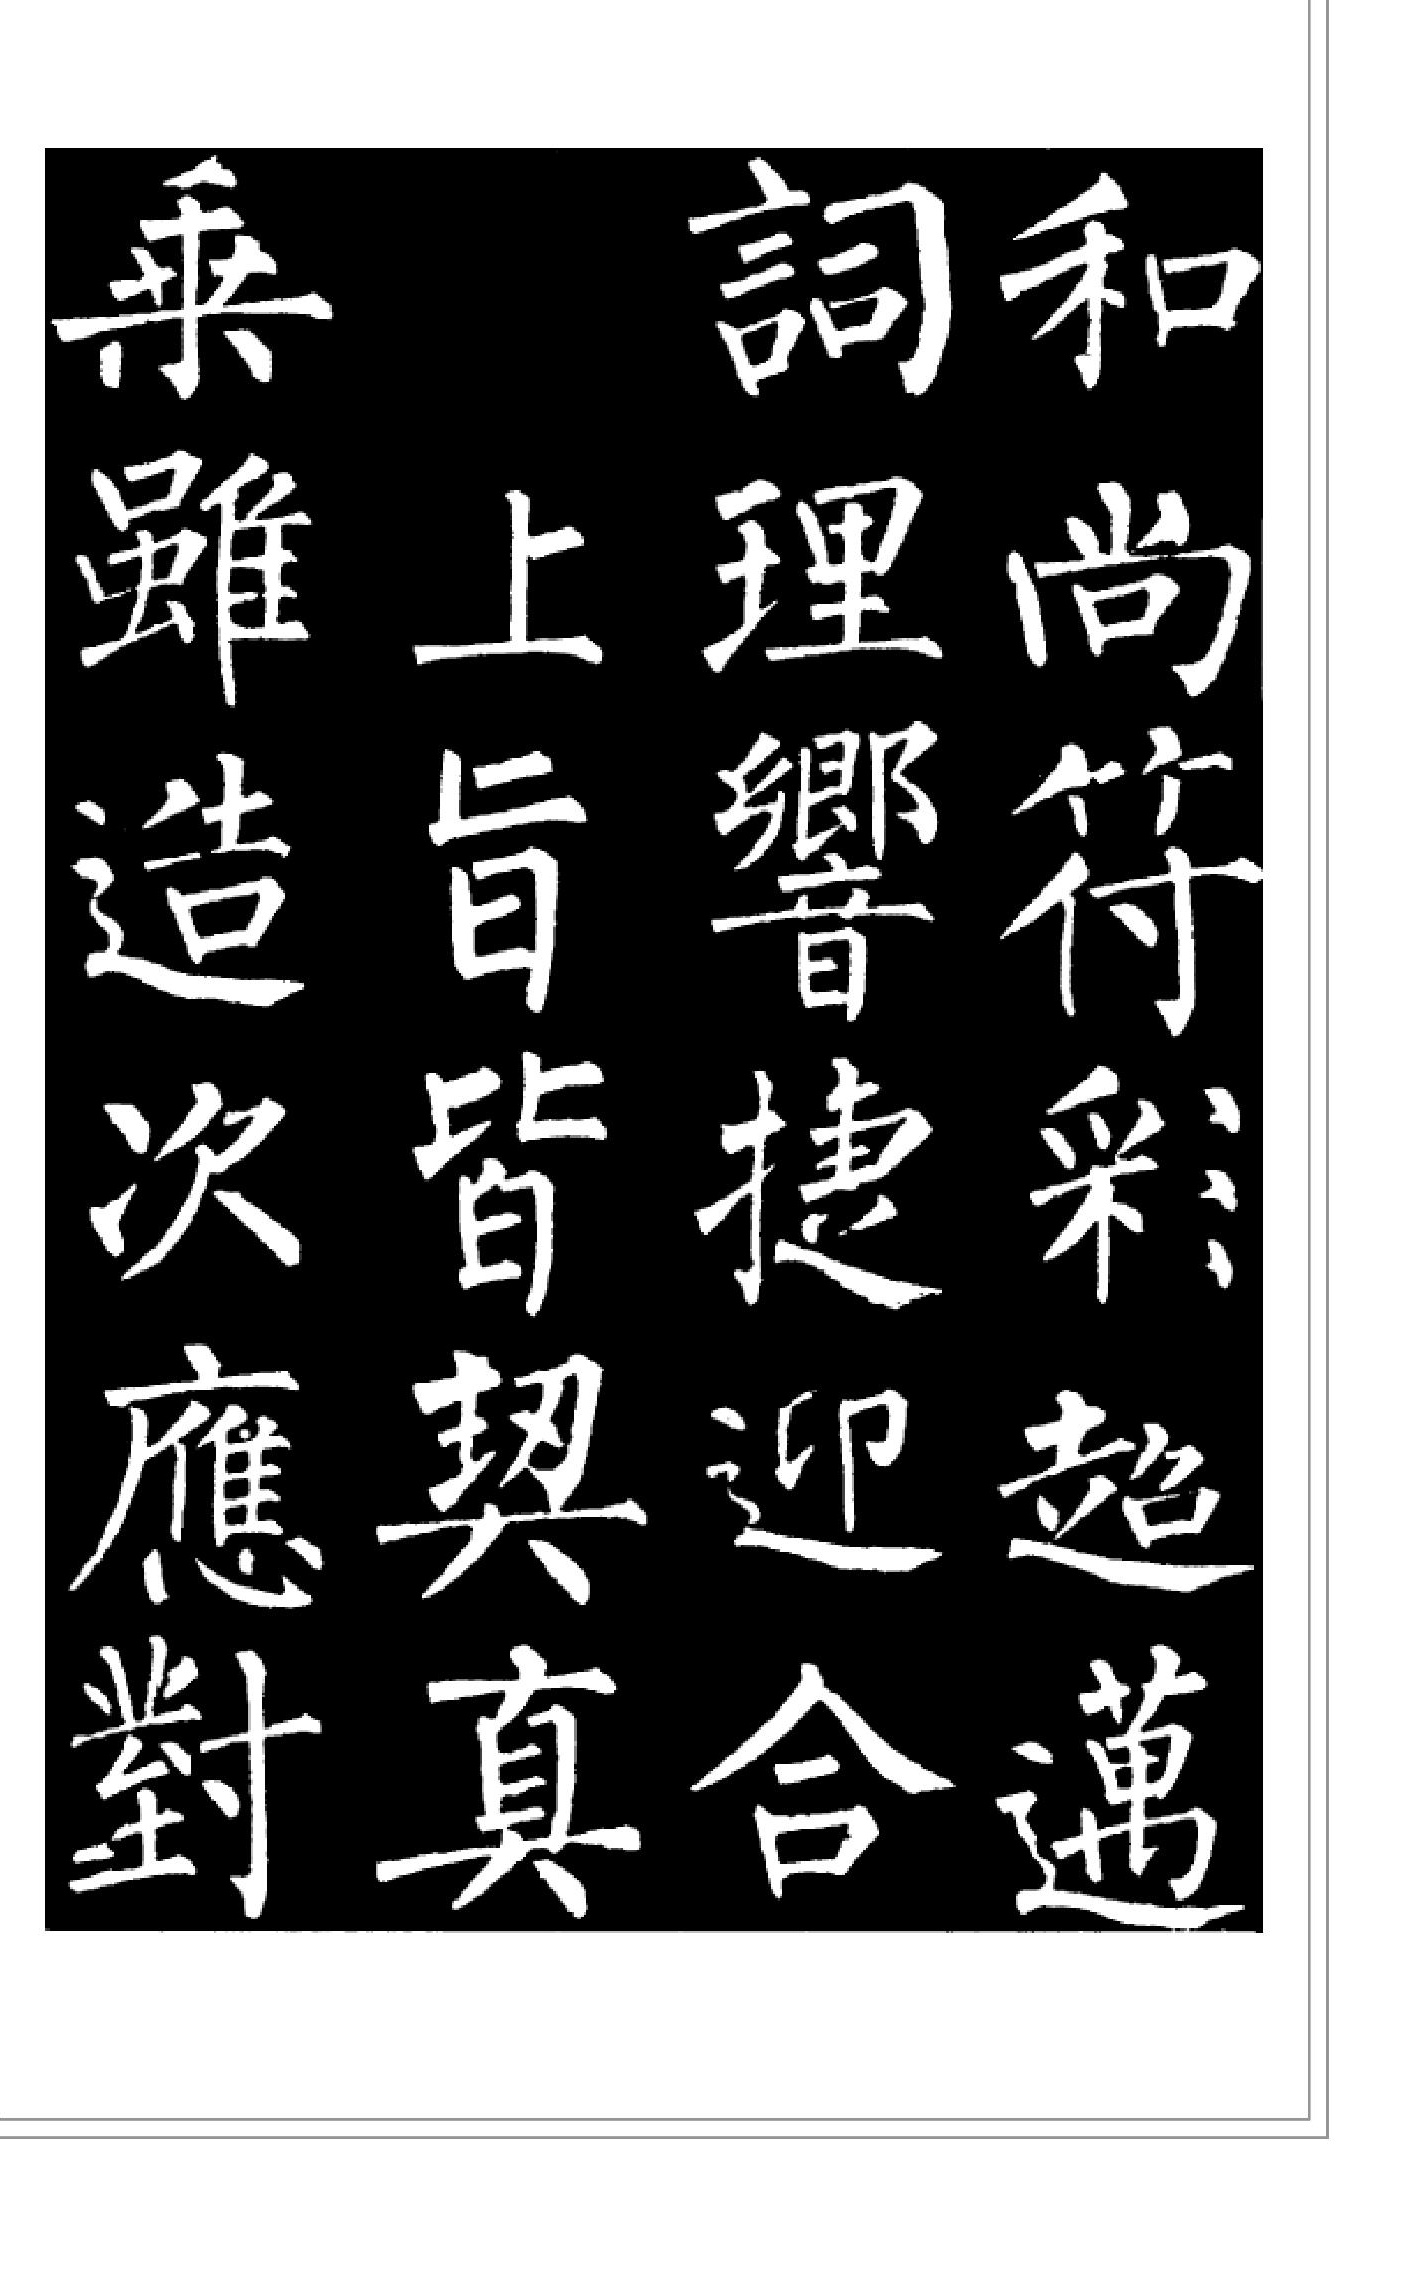 和尚符彩超邁
詞理響捷迎合
上旨皆契真
乘雖造次應對